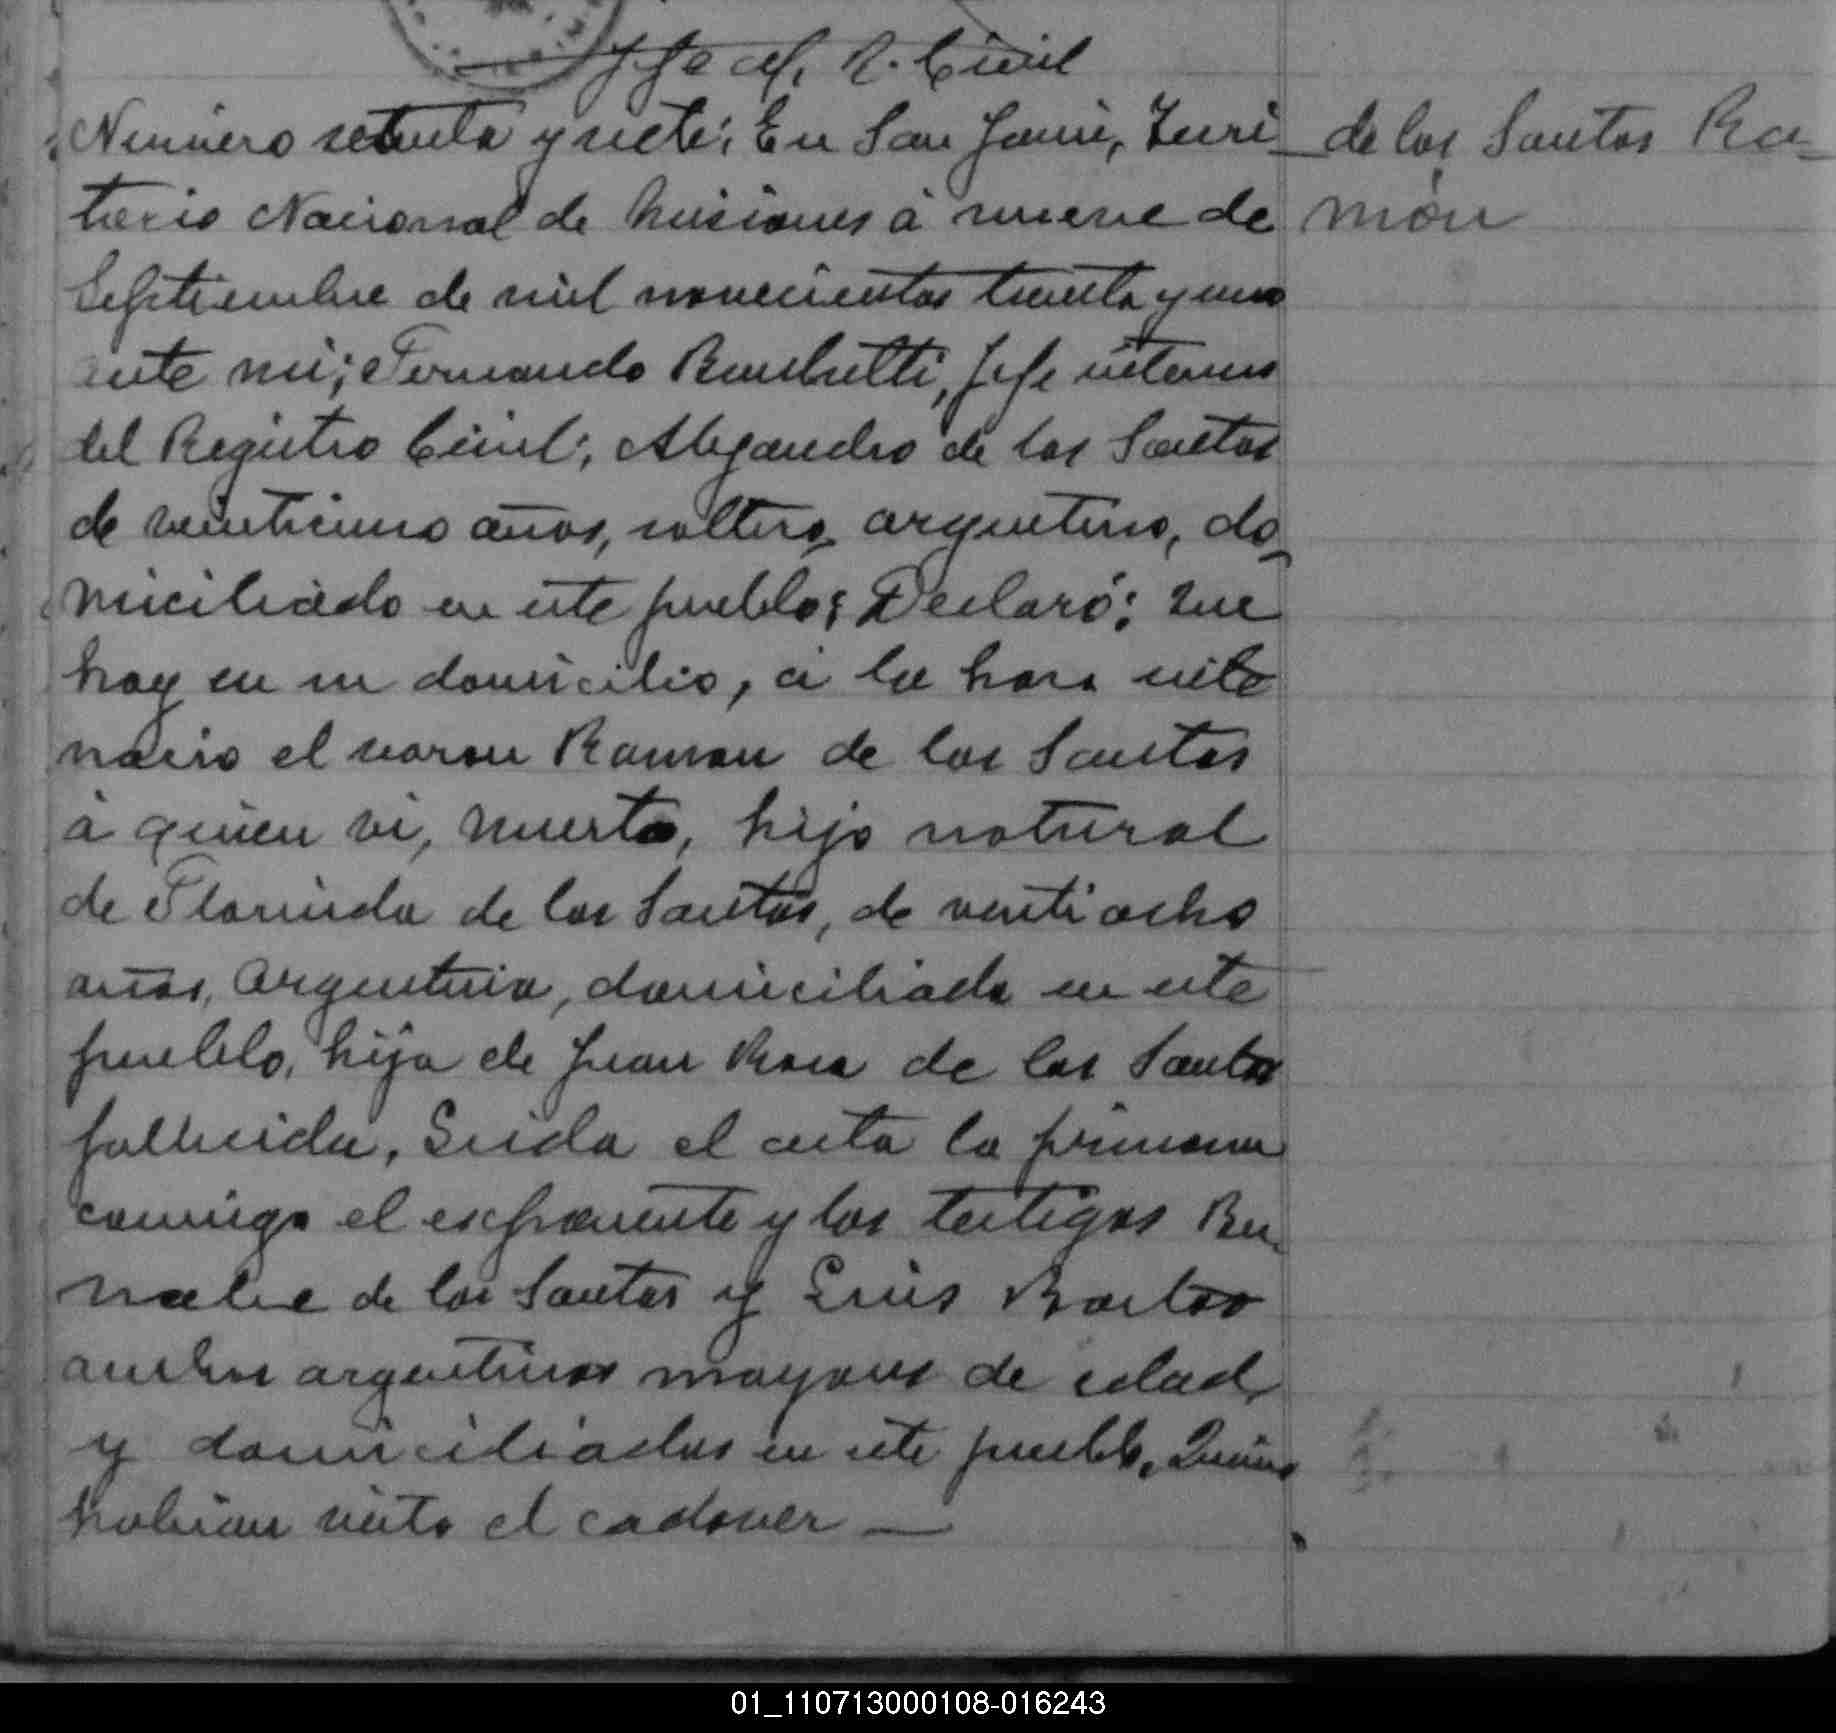 Jefe del R. Civil
Número setenta y siete; En San Javier, Terri-
torio Nacional de Misiones á nueve de
Septiembre de mil novecientos treinta y uno
ante mi; Fernando Jefe interino
del Registro Civil; Alejandro de los Santos
de veinticinco años, soltero, argentino, do-
miciliado en este pueblo; Declaró: Que
hoy en su domicilio, á la hora siete
nacio el varon Ramon de los Santos
á quien vi, muerto, hijo natural
de Florinda de los Santos, de ventiocho
años, argentina, domiciliada en este
pueblo, hija de Juan Rosa de los Santos
fallecida, Leida el acta la firmaron
conmigo el exponente y los testigos Ber-
nabe de los Santos y Luis
ambos argentinos mayores de edad,
y domiciliados en este pueblo, Quienes
habian visto el cadaver —
de los Santos Ra-
món
01_110713000108-016243